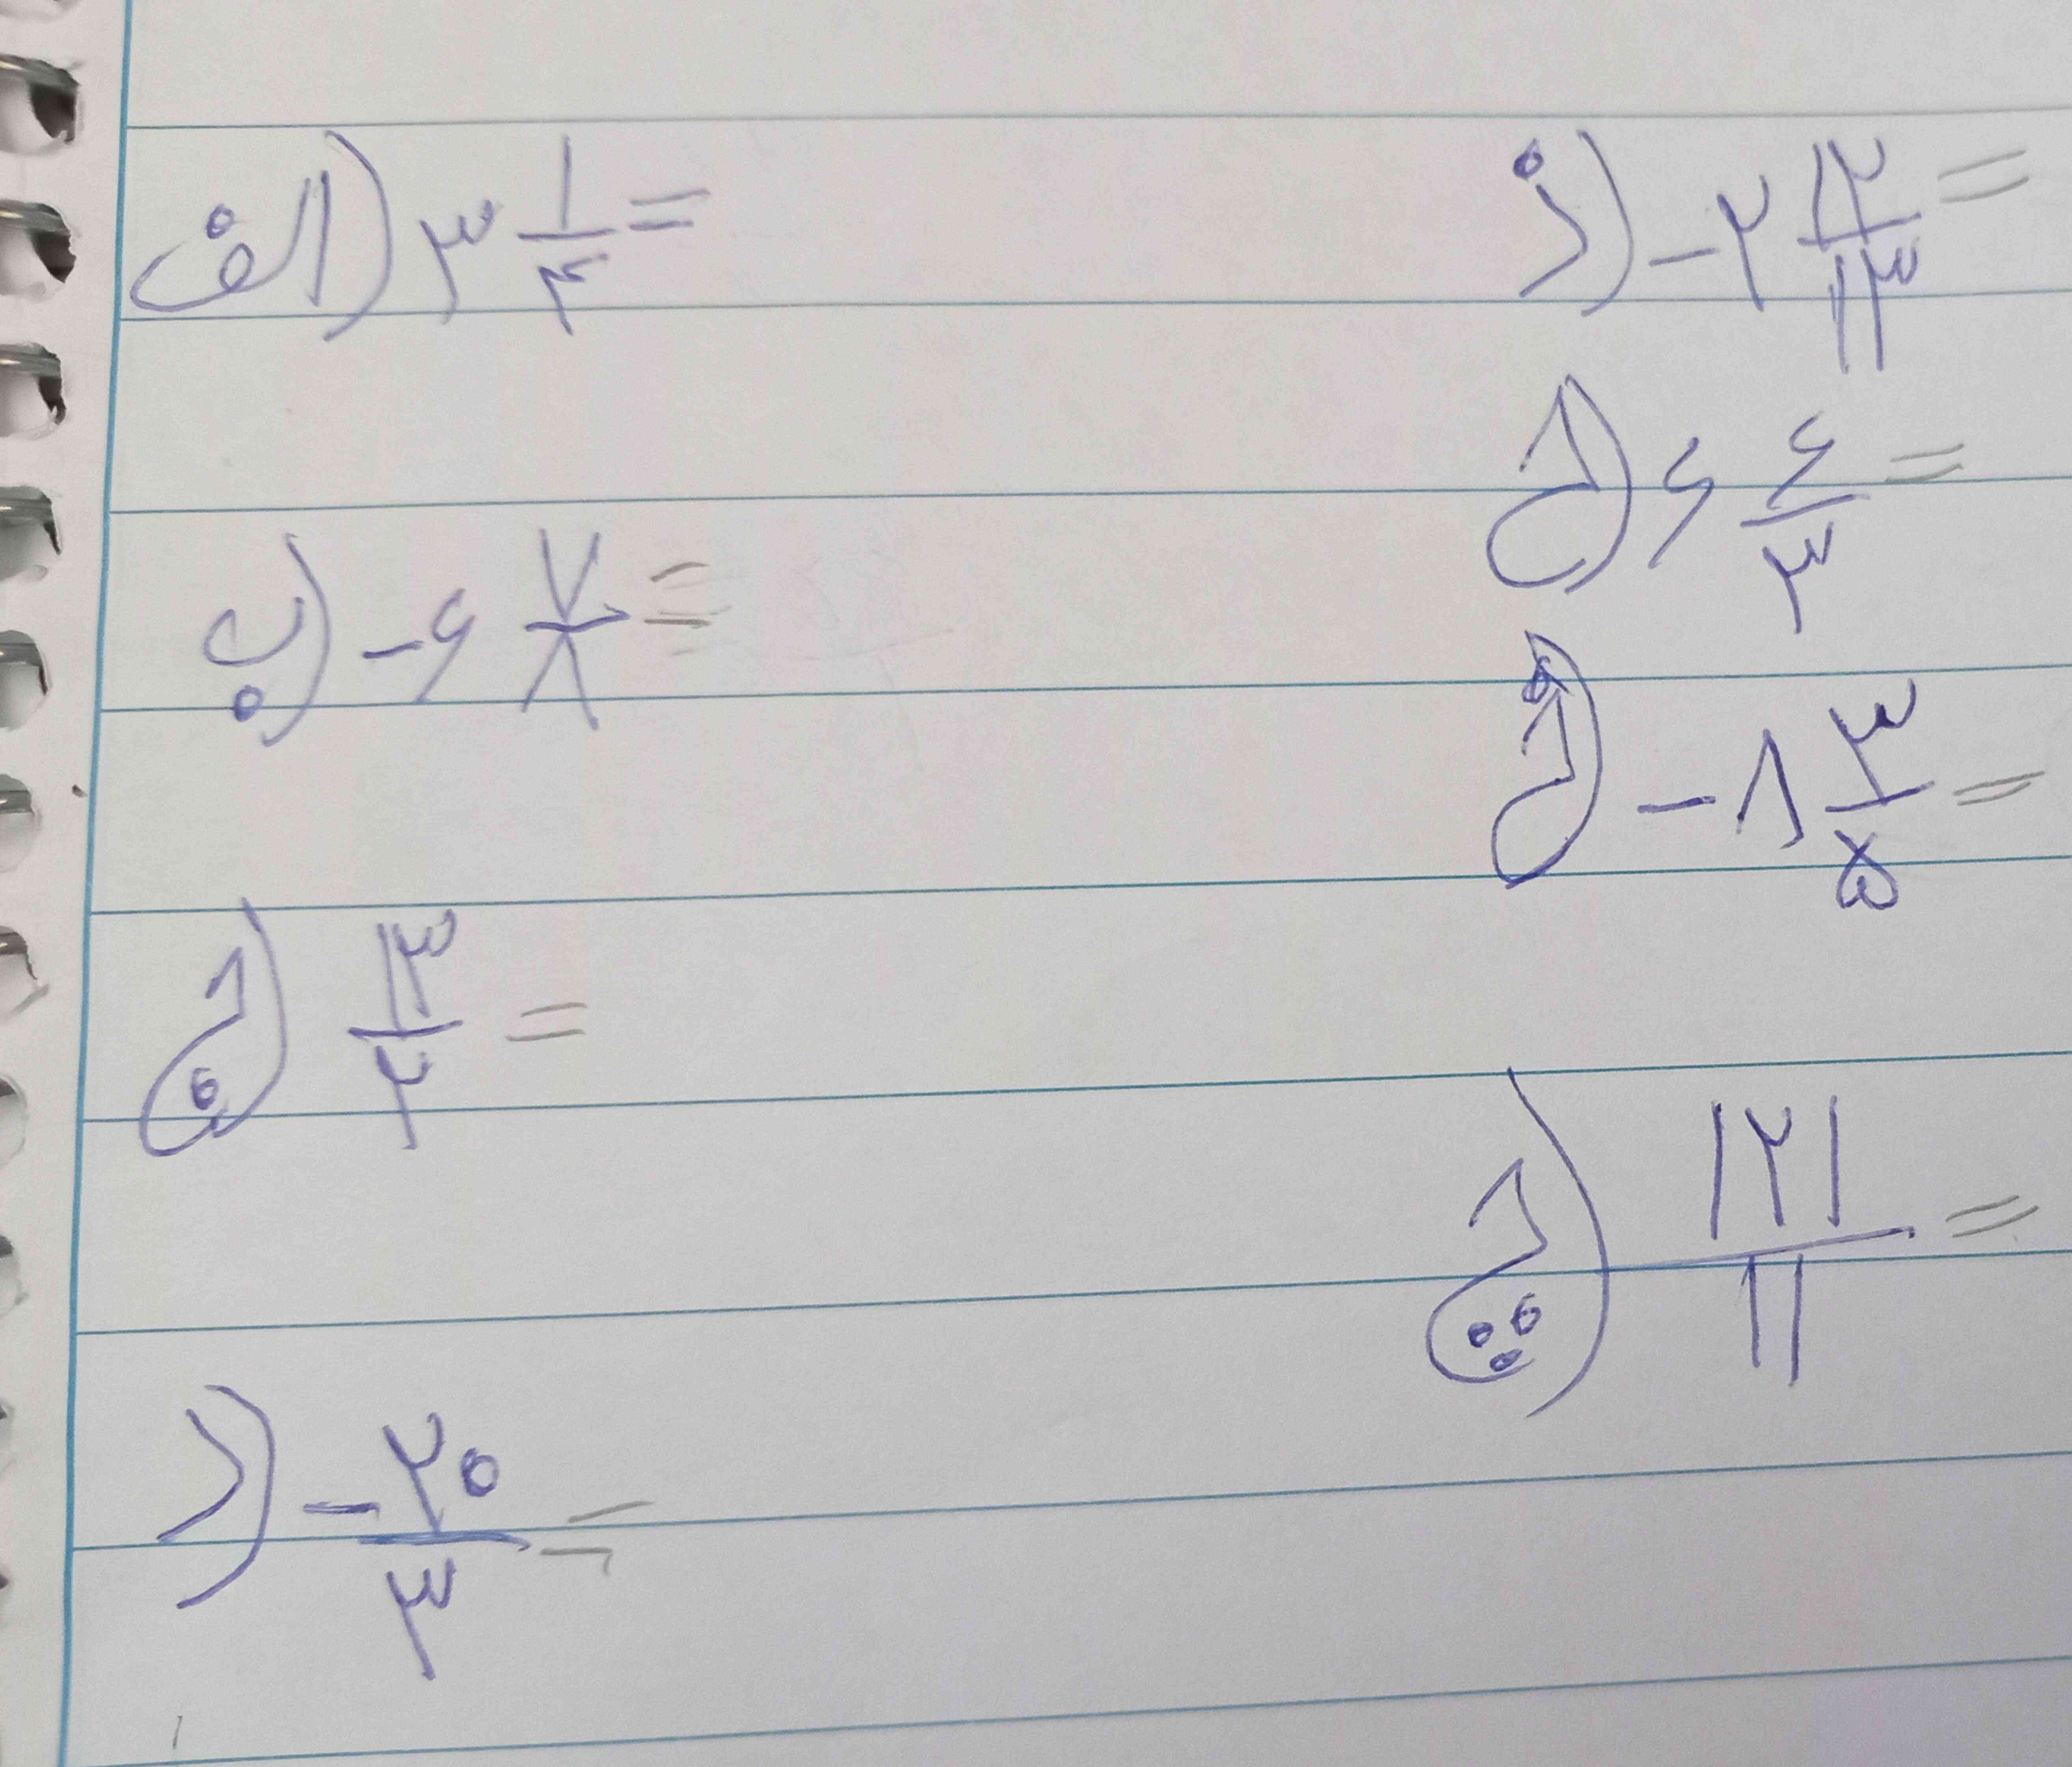 الف) ۳ ۱/۴ =
ب) -۶ ۷/۸ =
ج) ۱۳/۲ =
د) -۲۰/۳ =
ذ) -۲ ۱۲/۱۳ =
ح) ۶ ۴/۳ =
خ) -۸ ۳/۵ =
چ) ۱۲۱/۱۱ =